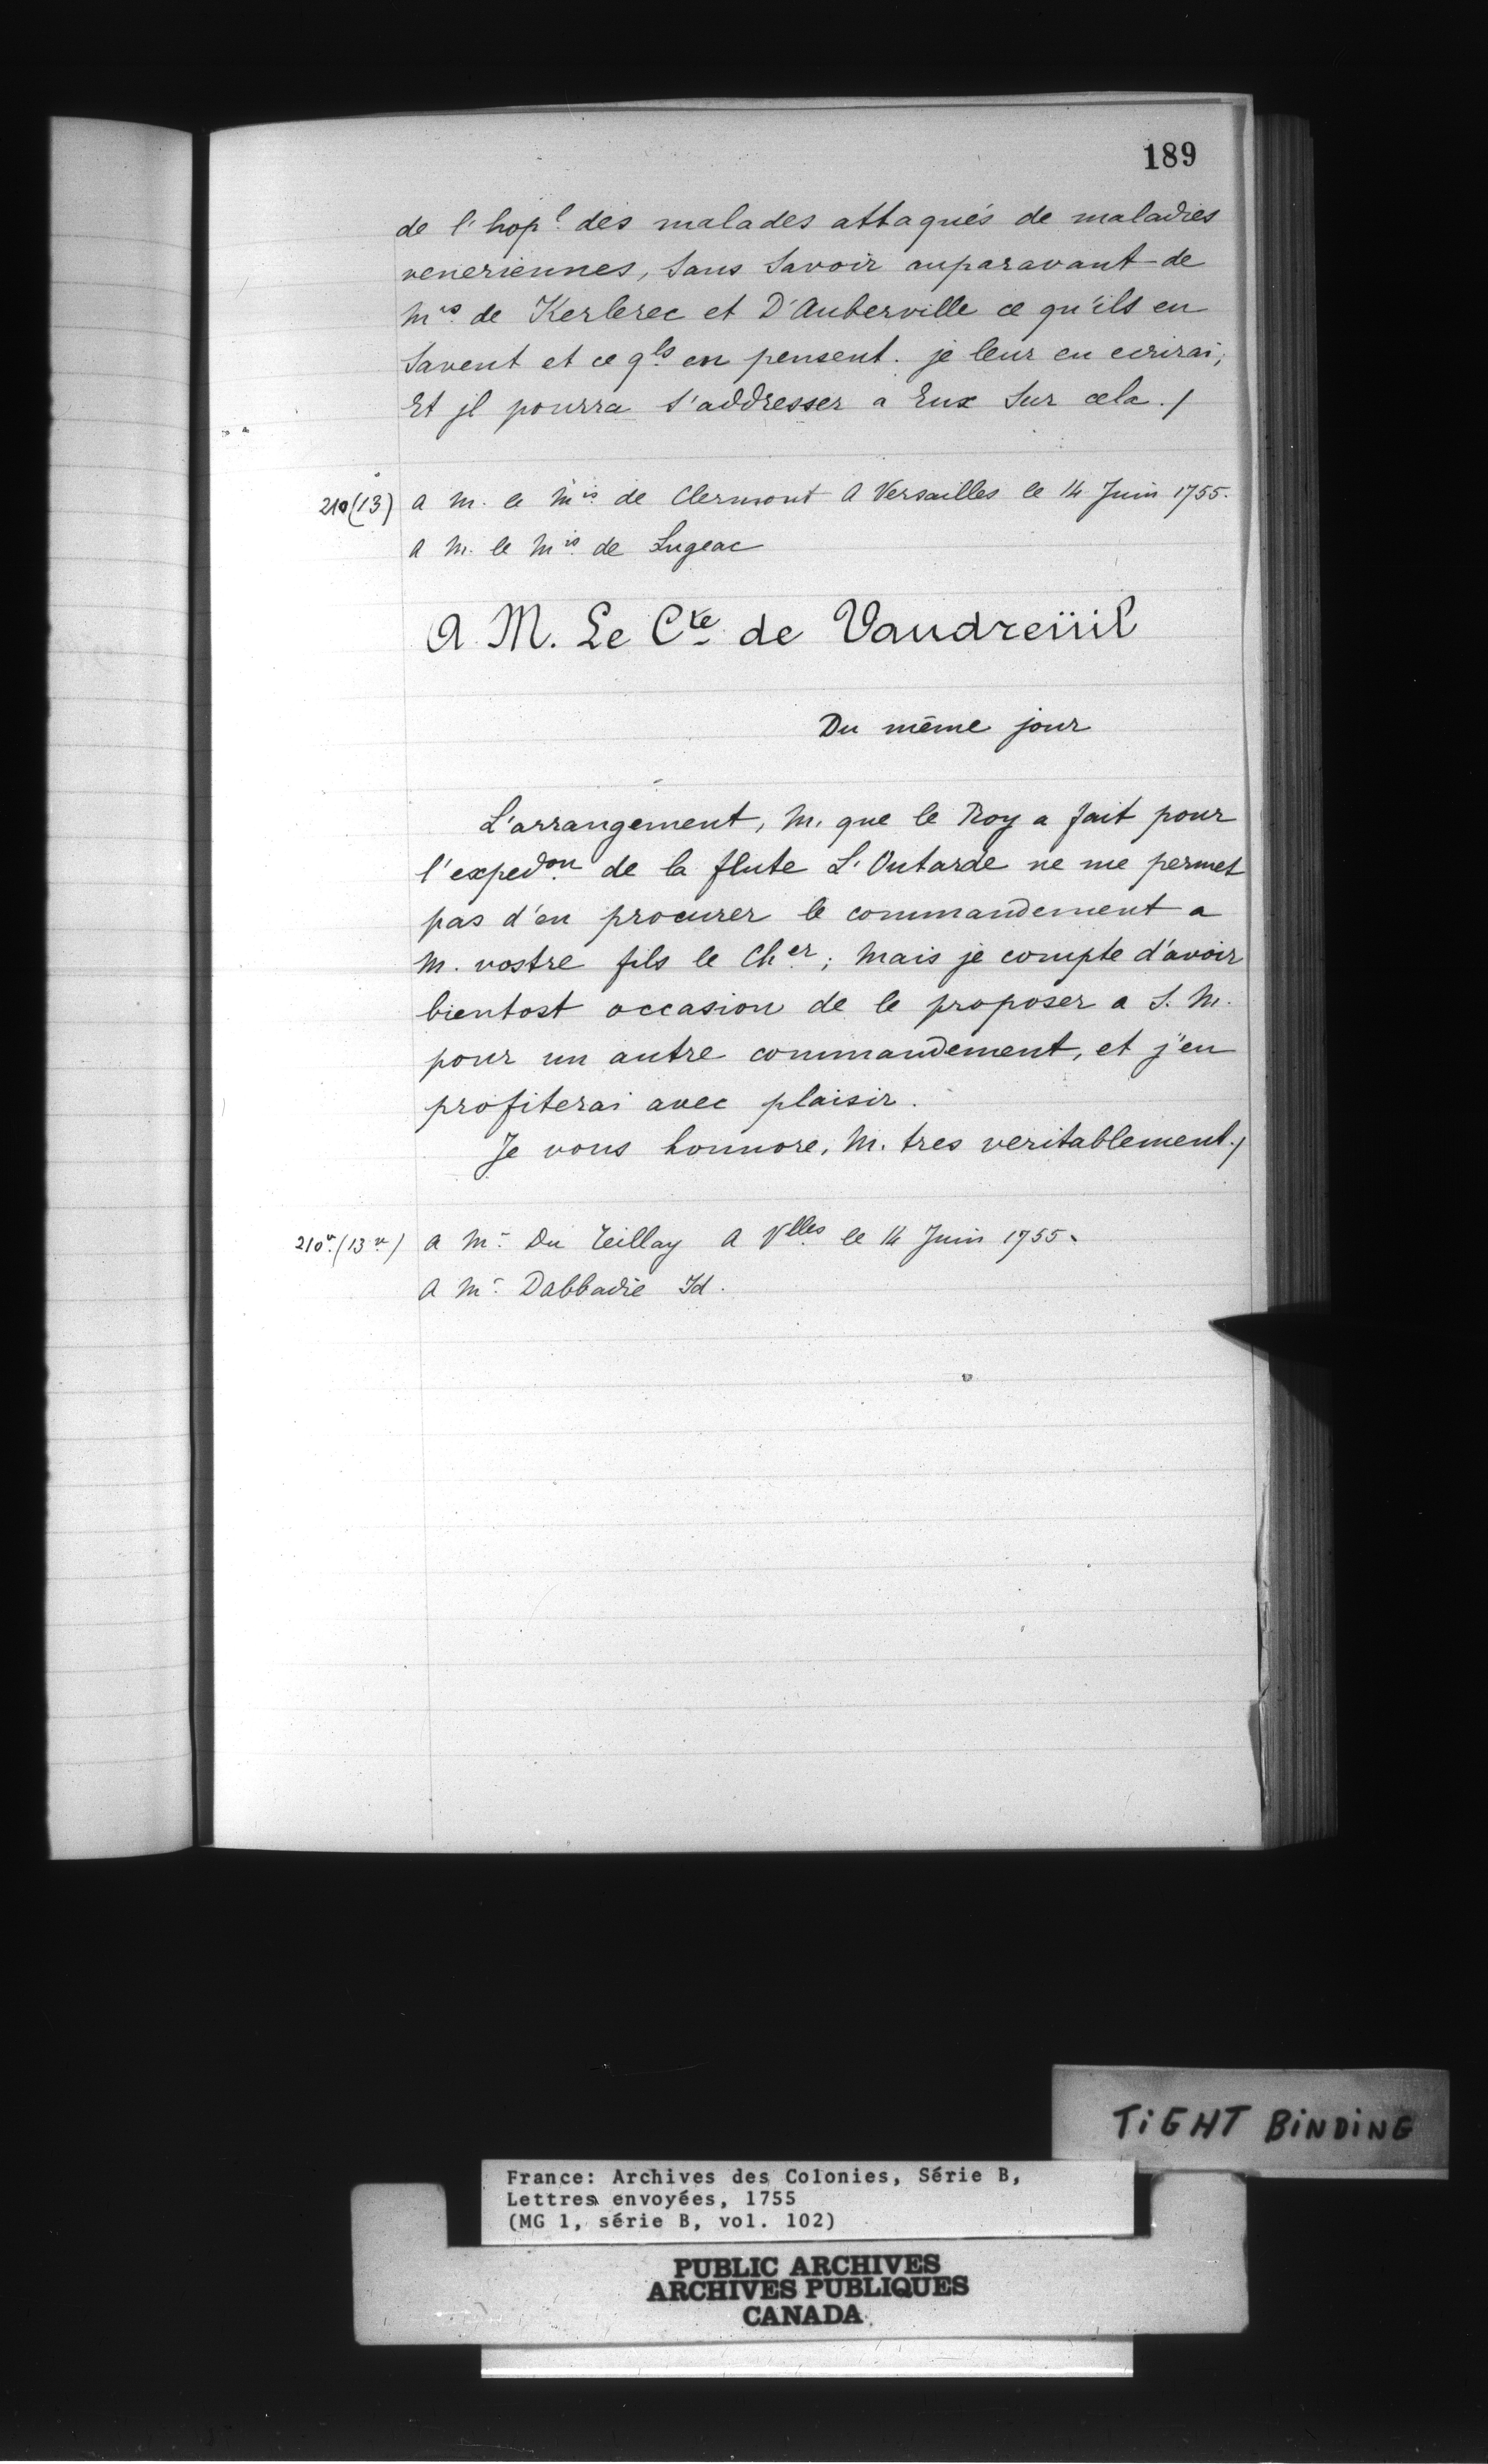 189
de l'hop.l des malades attaqués de maladies
veneriennes, sans savoir auparavant de
Mrs. de Kerlerec et D'Auberville ce qu'ils en
savent et ce q.ls en pensent. je leur en ecrirai;
Et jl pourra s'addresser a Eux sur cela./
210 (13) A M. le Mis. de Clermont A Versailles le 14 Juin 1755.
A M. le Mis. de Lugeac
A M. Le Cte de Vaudreüil
Du même jour
L'arrangement, M. que le Roy a fait pour
l'expedon. de la flute L'Outarde ne me permet
pas d'en procurer le commandement a
M. vostre fils le Cher.; Mais je compte d'avoir
bientost occasion de le proposer a S. M.
pour un autre commandement, et j'en
profiterai avec plaisir.
Je vous honnore, M. tres veritablement./
210v. (13v) A Mr. Du Teillay A Vlles le 14 Juin 1755.
A Mr. Dabbadie Id.
TIGHT BINDING
France: Archives des Colonies, Série B,
Lettres envoyées, 1755
(MG 1, série B, vol. 102)
PUBLIC ARCHIVES
ARCHIVES PUBLIQUES
CANADA